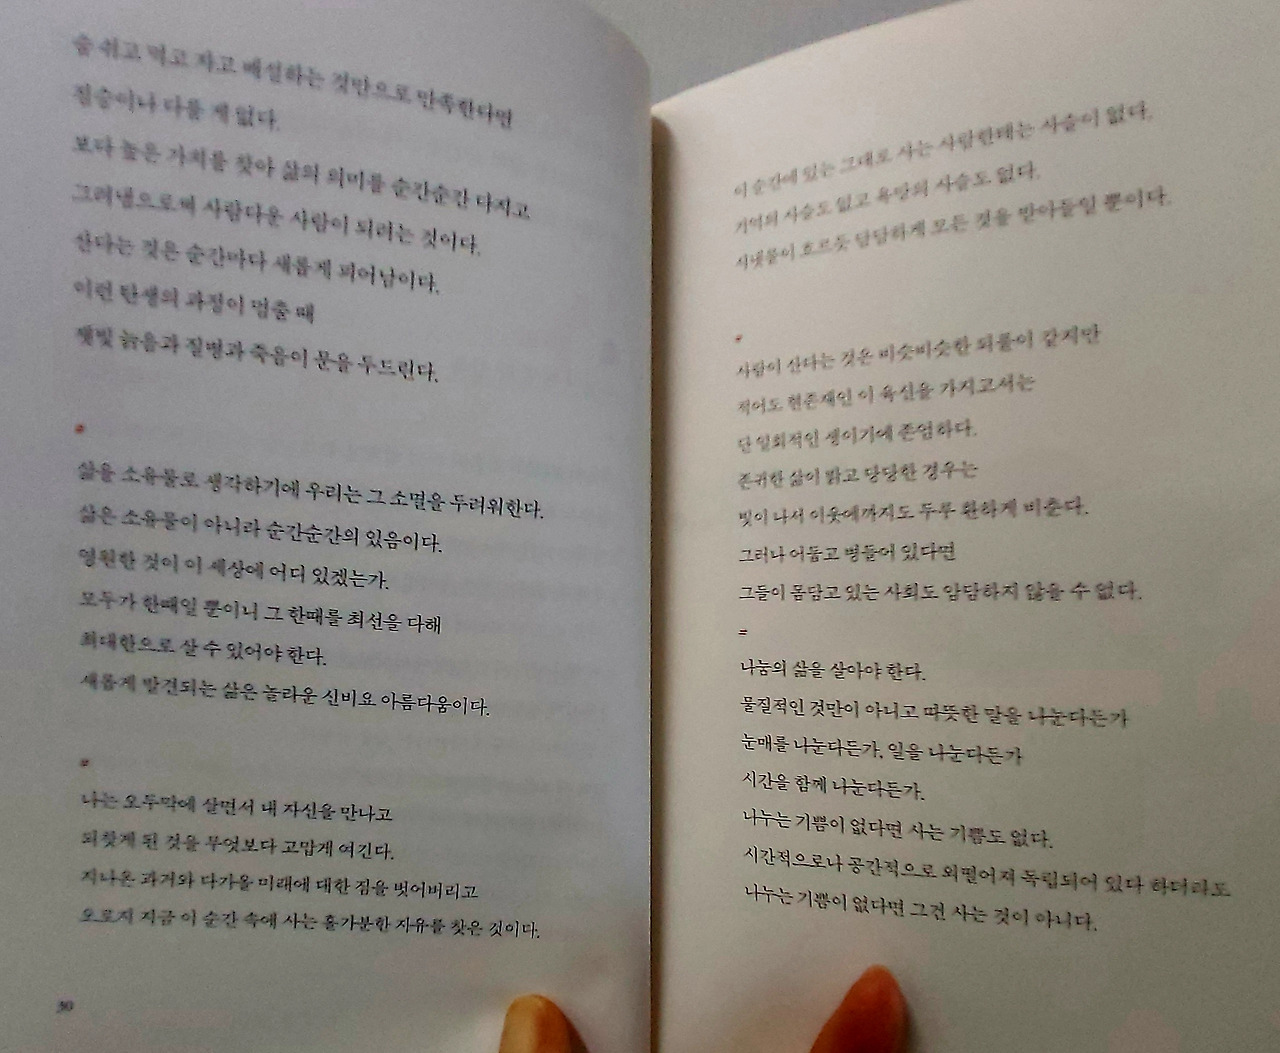 숨 쉬고 먹고 자고 배설하는 것만으로 만족한다면
짐승이나 다를 게 없다.
보다 높은 가치를 찾아 삶의 의미를 순간순간 다지고
그러냄으로써 사람다운 사람이 되려는 것이다.
산다는 것은 순간마다 새롭게 피어남이다.
이런 탄생의 과정이 멈출 때
잿빛 늙음과 질병과 죽음이 문을 두드린다.
삶을 소유물로 생각하기에 우리는 그 소멸을 두려워한다.
삶은 소유물이 아니라 순간순간의 있음이다.
영원한 것이 이 세상에 어디 있겠는가.
모두가 한때일 뿐이니 그 한때를 최선을 다해
최대한으로 살 수 있어야 한다.
새롭게 발견되는 삶은 놀라운 신비요 아름다움이다.
나는 오두막에 살면서 내 자신을 만나고
되찾게 된 것을 무엇보다 고맙게 여긴다.
지나온 과거와 다가올 미래에 대한 짐을 벗어버리고
오로지 지금 이 순간 속에 사는 홀가분한 자유를 찾은 것이다.
30
이 순간에 있는 그대로 사는 사람한테는 사슬이 없다.
기억의 사슬도 없고 욕망의 사슬도 없다.
시냇물이 흐르듯 담담하게 모든 것을 받아들일 뿐이다.
사람이 산다는 것은 비슷비슷한 되풀이 같지만
적어도 현존재인 이 육신을 가지고서는
단 일회적인 생이기에 존엄하다.
존귀한 삶이 밝고 당당한 경우는
빛이 나서 이웃에까지도 두루 환하게 비춘다.
그러나 어둡고 병들어 있다면
그들이 몸담고 있는 사회도 암담하지 않을 수 없다.
나눔의 삶을 살아야 한다.
물질적인 것만이 아니고 따뜻한 말을 나눈다든가
눈매를 나눈다든가, 일을 나눈다든가
시간을 함께 나눈다든가.
나누는 기쁨이 없다면 사는 기쁨도 없다.
시간적으로나 공간적으로 외떨어져 독립되어 있다 하더라도
나누는 기쁨이 없다면 그건 사는 것이 아니다.